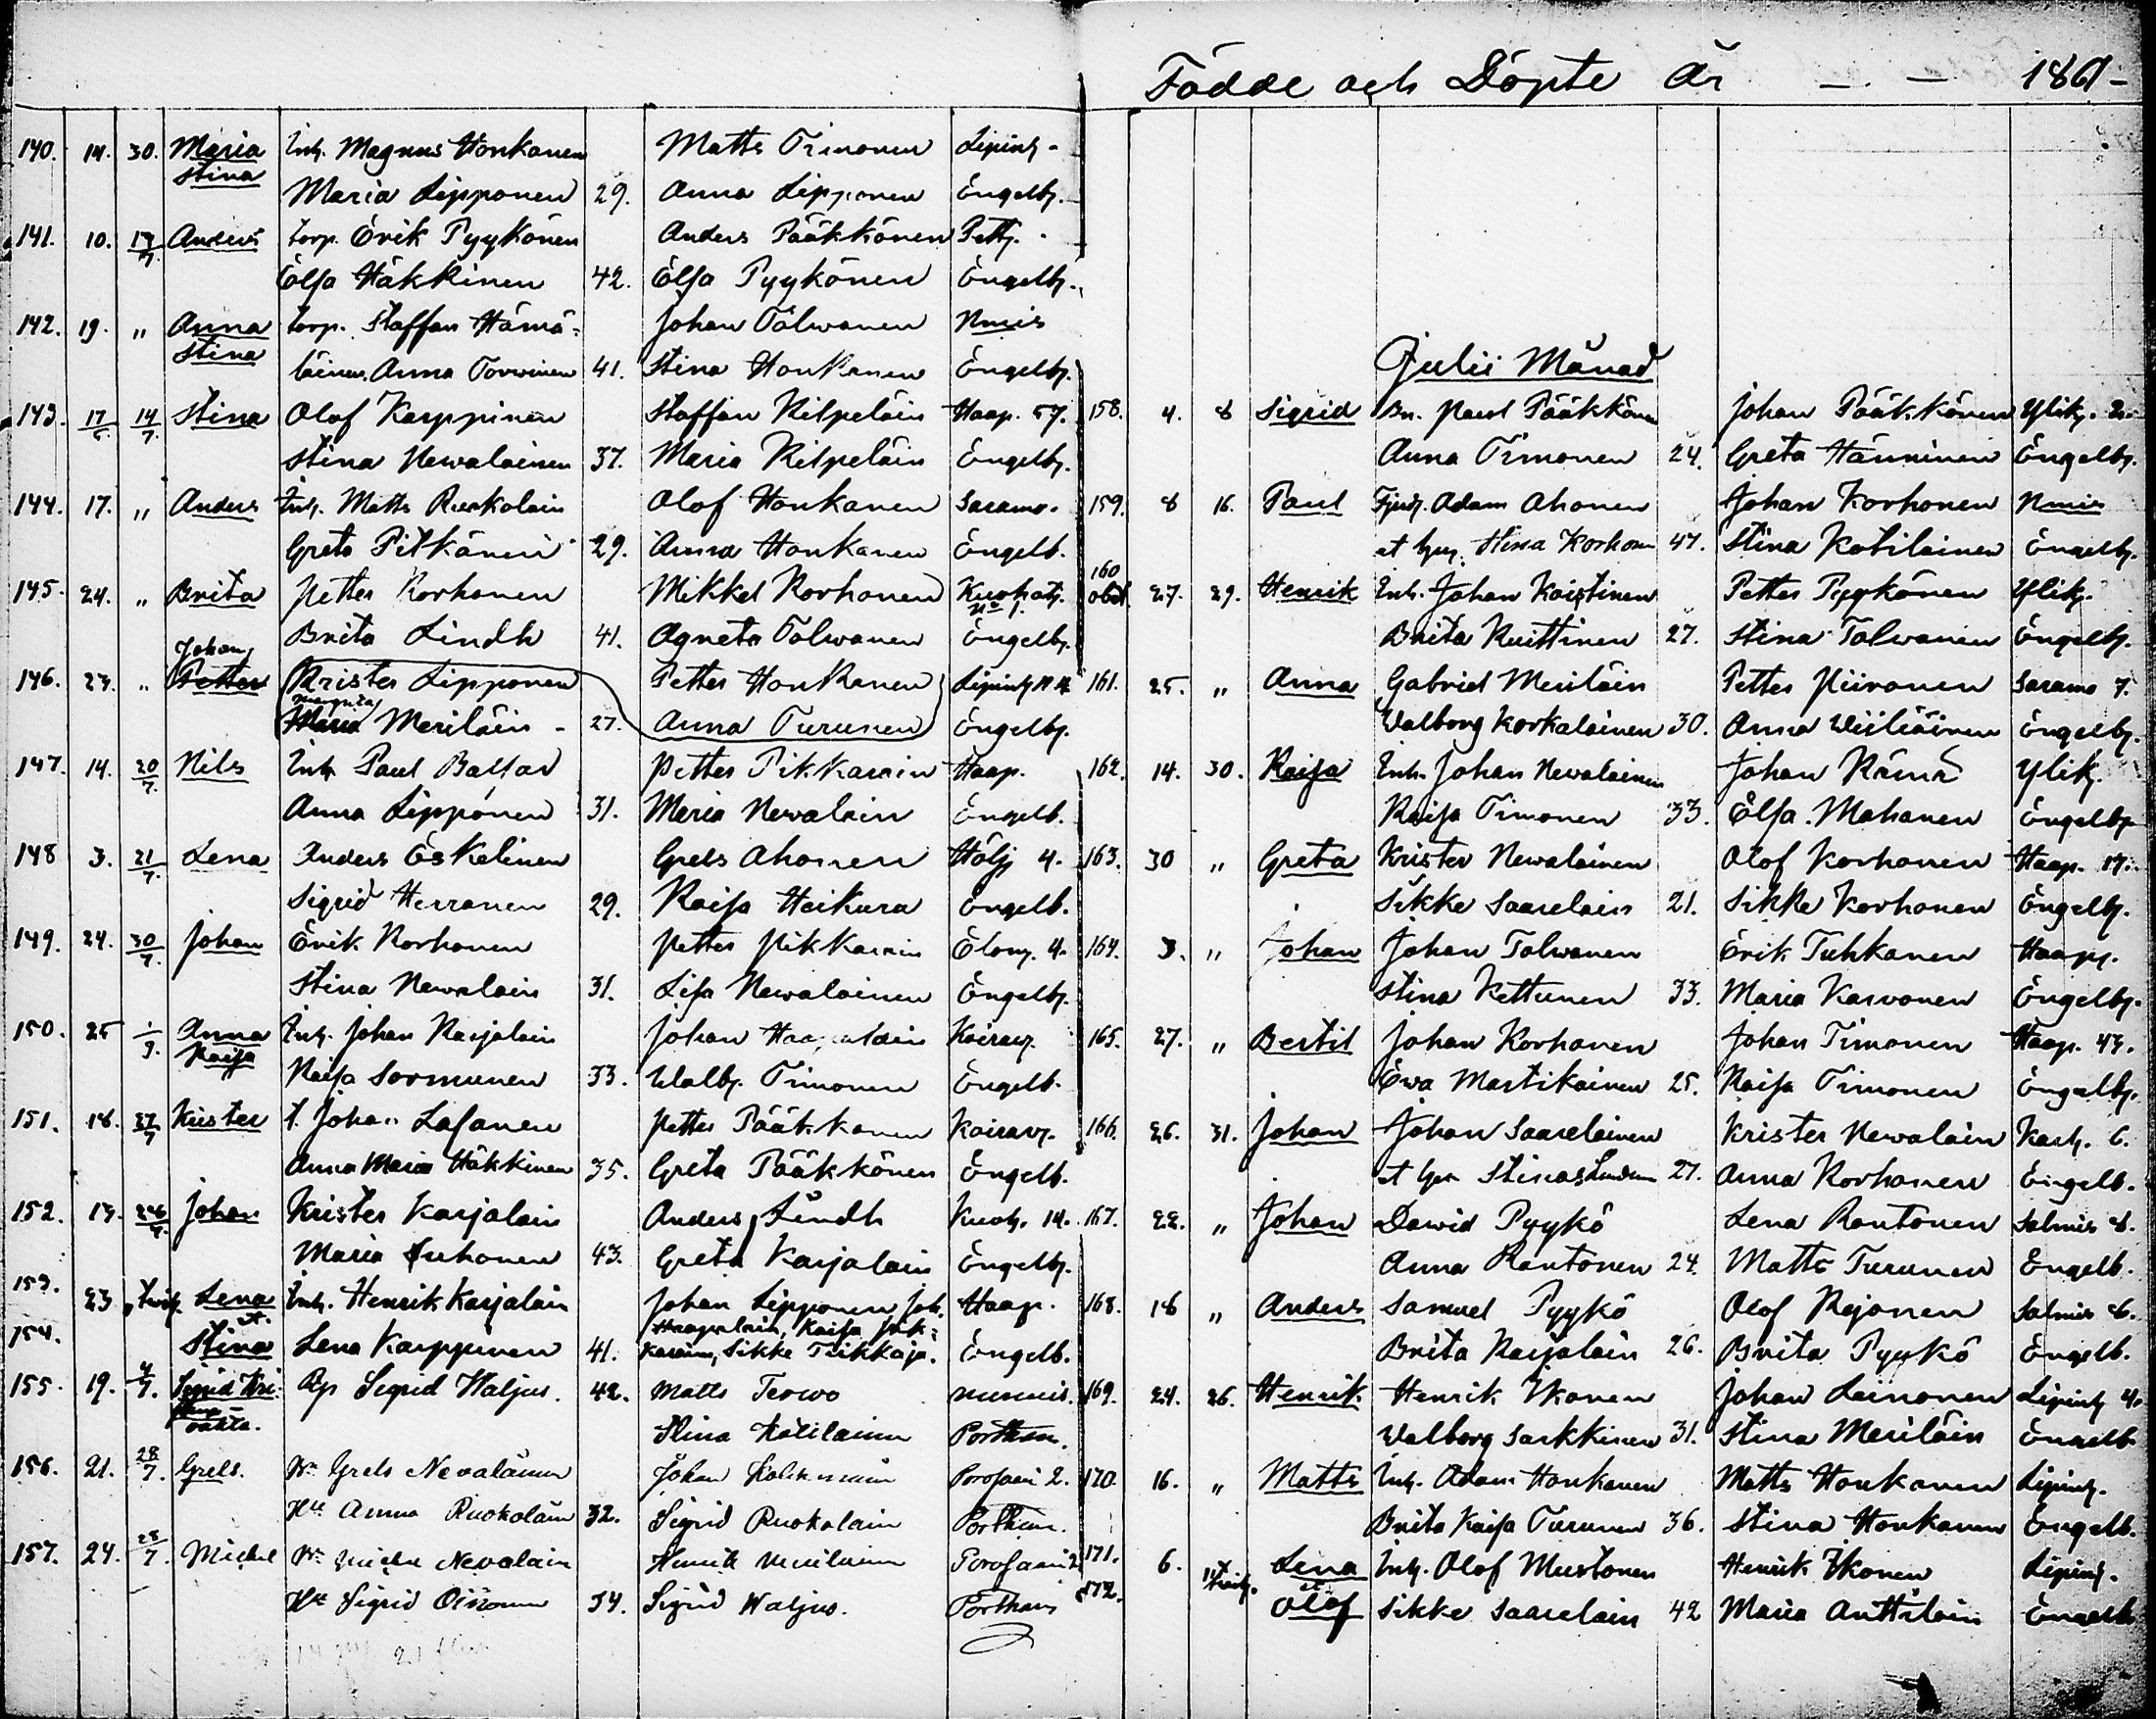 Födde och Döpte År — — 1861 -
140. 14. 30. Maria Inh. Magnus Honkanen Matts Timonen Lipinl.
Stina Maria Lipponen 29. Anna Lipponen Engelb.
141. 10. 14/7. Anders torp. Erik Pyykönen Anders Pääkkönen Pettj.
Elsa Häkkinen 42. Elsa Pyykönen Engelb.
142. 19. " Anna torp. Staffan Hämä= Johan Tolwanen Nmis
Stina läinen, Anna Torvinen 41. Stina Honkanen Engelb.
143. 17/6. 14/7. Stina Olof Karppinen Staffan Kilpeläin Haap. 57.
Stina Newalainen 37. Maria Kilpeläin Engelb.
144. 17. " Anders Inh. Matts Ruokolain Olof Honkanen Saramo.
Greta Pitkänen 29. Anna Honkanen Engelb.
145. 24. " Brita Petter Korhonen Mikkel Korhonen Kuohatj. No 1.
Brita Lindh 41. Agneta Tolwanen Engelb.
Johan
146. 23. " Petter Krister Lipponen Petter Honkanen Lipinl.
Margreta
Maria Meriläin - 27. Anna Turunen Engelb.
147. 14. 20/7. Nils Inh Paul Baltar Petter Pikkarain Haap.
Anna Lipponen 31. Maria Newalain Engelb.
148 3. 21/7. Lena Anders Eskelinen Grels Ahonen Hölj 4.
Sigrid Herranen 29. Kaisa Heikura Engelb.
149. 24. 30/7. Johan Erik Korhonen Petter Pikkarain Elowj. 4.
Stina Newalain 31. Lisa Newalainen Engelb.
150. 25 1/9. Anna Inh. Johan Karjalain Johan Haapalain Koirawj.
Kaisa Kaisa Sormunen 33. Walb. Timonen Engelb.
151. 18. 27/7 Krister t. Johan Lasanen Petter Pääkkönen Koirawj.
Anna Maria Häkkinen 35. Greta Pääkkönen Engelb.
152. 13. 26/7. Johan Krister Karjalain Anders Lindh Kuohj. 14.
Maria Juhonen 43. Greta Karjalain Engelb.
153. 23 " Lena Inh. Henrik Karjalain Johan Lipponen, Joh. Haap.
et Haapalain, Kaisa Pik=
154. Stina Lena Karppinen 41. karain, Sikke Tiikkaja. Engelb.
155. 19. 4/7. Sigrid Pig Sigrid Waljus. 42. Matts Terwo nurmis.
oäkta. Stina Kotilainen Porthan.
156. 21. 28/7. Grels. Bn Grels Nevalainen Johan Porosaari 2.
Hu Anna Ruokolain 32. Sigrid Ruokolain Porthan.
157. 24. 28/7. Michel Bn Michel Nevalain Henrik Meriläinen Porosaari 2
Hu Sigrid Oinonen 34. Sigrid Waljus. Porthan
Julii Månad
158. 4. 8 Sigrid Bn. Paul Pääkkönen Johan Pääkkönen Ylikj. 2.
Anna Timonen 24. Greta Hänninen Engelb.
159. 8 16. Paul Adam Ahonen Johan Korhonen Nmis
et Stina Korhonen 47. Stina Kotilainen Engelb.
160 27. 29. Henrik Inh. Johan Koistinen Petter Pyykönen Ylikj.
Brita Kuittinen 27. Stina Tolwanen Engelb.
161. 25. " Anna Gabriel Meriläin Petter Piironen Saramo 7.
Walborg Korkalainen 30. Anna Wiiliäinen Engelb.
162. 14. 30. Kaisa Inh. Johan Newalainen Johan Rämä Ylikj.
Kaisa Timonen 33. Elsa Mahanen Engelb.
163. 30 " Greta Krister Newalainen Olof Korhonen Haap. 19.
Sikke Saarelain 21. Sikke Korhonen Engelb.
164. 3. " Johan Johan Tolwanen Erik Tuhkanen Haap.
Stina Kettunen 33. Maria Karvonen Engelb.
165. 27. " Bertil Johan Korhonen Johan Timonen Haap. 43.
Ewa Martikainen 25. Kaisa Timonen Engelb.
166. 26. 31. Johan Johan Saarelainen Krister Newalain Karh. 6.
et Stina 27. Anna Korhonen Engelb.
167. 22. " Johan Dawid Pyykö Lena Rantonen Salmis 8.
Anna Rantonen 24. Matts Turunen Engelb.
168. 18 " Anders Samuel Pyykö Olof Rejonen Salmis 8.
Brita Karjalain 26. Brita Pyykö Engelb.
169. 24. 26. Henrik Henrik Ikonen Johan Leinonen Lipinl 4.
Walborg Sarkkinen 31. Stina Meriläin Engelb
170. 16. " Matts Inh. Adam Honkanen Matts Honkanen Lipinl.
Brita Kaisa Turunen 36. Stina Honkanen Engelb.
171. 6. Lena Inh. Olof Mustonen Henrik Ikonen Lipinl.
172. et Olof Sikke Saarelain 42 Maria Anttilain Engelb